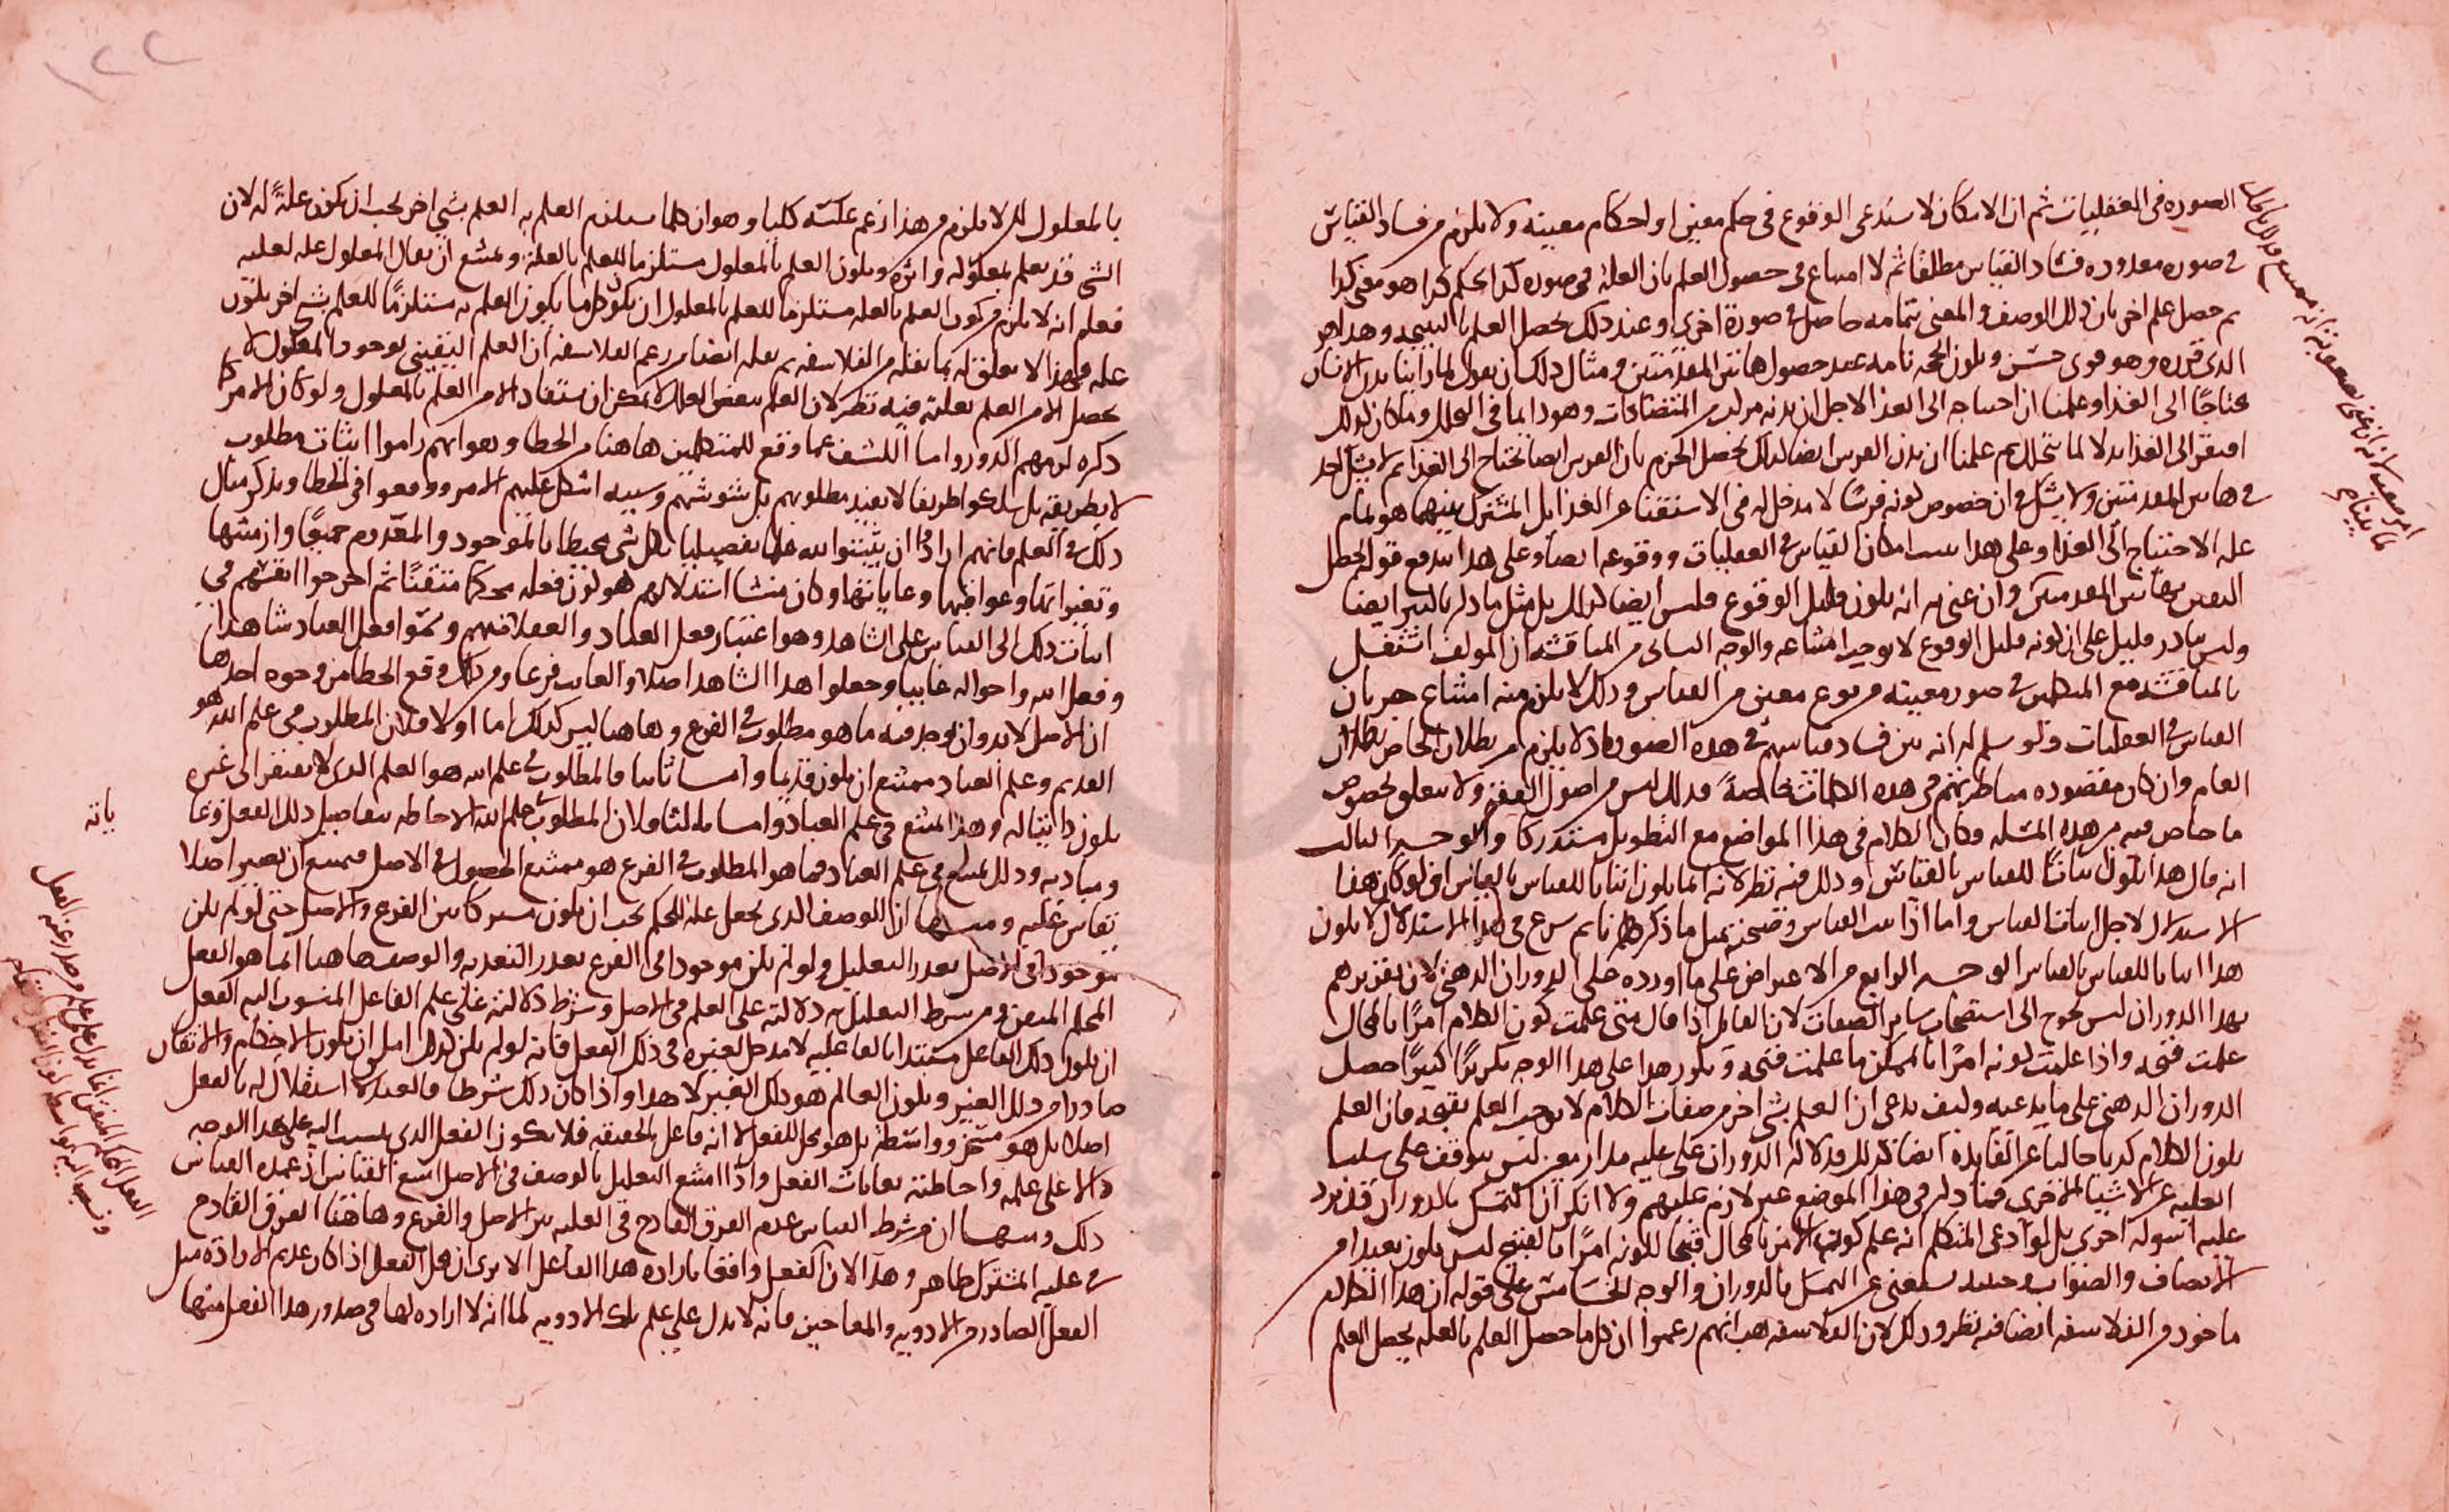 الصوره فى العقليات ثم ان الامكان لا يستدعى الوقوع فى حكم معين او احكام معينه ولا يلزم من فساد القياس
فى صوره معدوده فساد القياس مطلقا ثم لا امتناع فى حصول العلم بان العله فى صوره كذا لحكم كذا هو معنى كذا
ثم حصل علم اخر بان ذلك الوصف والمعنى بتمامه حاصل فى صورة اخرى وعند ذلك يحصل العلم بالنتيجه وهذا هو
الذى قرره وهو قوى حسن ويكون الحجه تامه عند حصول هاتين المقدمتين ومثال ذلك ان يقول لما راينا بدن الانسان
محتاجا الى الغذا وعلمنا ان احتياجه الى الغذا لاجل ان بدنه مركب من المتضادات وهو دايما فى التحلل وما كان كذلك
افتقر الى الغذا بدلا لما تحلل ثم علمنا ان بدن الفرس ايضا كذلك يحصل الجزم بان الفرس ايضا يحتاج الى الغذا ثم لا يشك احد
فى هاتين المقدمتين ولا يشك فى ان خصوص كونه فرسا لا مدخل له فى الاستغنا عن الغذا بل المشترك بينهما هو تمام
عله الاحتياج الى الغذا وعلى هذا يثبت امكان القياس فى العقليات ووقوعه ايضا وعلى هذا يندفع قوله يحصل
اليقين بهاتين المقدمتين وان عنى به انه يكون قليل الوقوع فليس ايضا كذلك بل مثل ما ذكر بالكثير ايضا
وليس بنادر قليل على ان كونه قليل الوقوع لا يوجب امتناعه والوجه الثانى من المناقشه ان المولف اشتغل
بالمناقشه مع المتكلمين فى صور معينه من نوع معين من القياس وذلك لا يلزم منه امتناع جريان
القياس فى العقليات ولو سلم له انه بين فساد قياسهم فى هذه الصوره اذ لا يلزم من بطلان الخاص بطلان
العام وان كان مقصوده مناظرتهم فى هذه الكلمات خاصة فذلك ليس من اصول الفقه ولا يتعلق بخصوص
ما خاض فيه من هذه المسله وكان الكلام فى هذا المواضع مع التطويل مستدركا والوجه الثالث
انه قال هذا يكون اثباتا للقياس بالقياس وذلك فيه نظر لانه انما يكون اثباتا للقياس بالقياس ان لو كان هذا
الاستدلال لاجل اثبات القياس واما اذا ثبت القياس وصحته بمثل ما ذكرناه ثم شرع فى هذا الاستدلال لا يكون
هذا اثباتا للقياس بالقياس الوجه الرابع من الاعتراض على ما اورده على الدوران الذهنى لان تقريرهم
بهذا الدوران ليس يحوج الى استصحاب ساير الصفات لان القايل اذا قال متى علمت كون الكلام امرا بالمحال
علمت قبحه واذا علمت كونه امرا بالممكن ما علمت قبحه وتكرر هذا على هذا الوجه تكررا كثيرا حصل
الدوران الذهنى على ما يدعيه وكيف يدعى ان العلم بشى اخر من صفات الكلام لا يوجب العلم بقبحه فان العلم
بكون الكلام كذبا خاليا عن الفايده ايضا كذلك ودلالة الدوران على عليه مدار معين ليس يتوقف على سلب
العليه عن الاشيا الاخرى فما ذكر فى هذا الموضع غير لازم عليهم ولا انكر ان التمسك بالدوران قد يرد
عليه اسوله اخرى بل لو ادعى المتكلم انه علم كون الامر بالمحال قبيحا لكونه امرا بالقبيح ليس يكون بعيدا من
الانصاف والصواب وحينئذ يستغنى عن التمسك بالدوران والوجه الخامس على قوله ان هذا الكلام
ماخوذ من الفلاسفه ايضا فيه نظر وذلك لان الفلاسفه هب انهم زعموا ان كل ما حصل العلم بالعله يحصل العلم
بالمعلول لكن لا يلزم من هذا زعم عكسه كليا وهو ان كلما يستلزم العلم به العلم بشى اخر يجب ان يكون علة له لان
الشى قد يعلم بمعلوله واثره ويكون العلم بالمعلول مستلزما للعلم بالعله ويمتنع ان يقال المعلول عله لعليه
فعلم انه لا يلزم من كون العلم بالعله مستلزما للعلم بالمعلول ان يكون كل ما يكون العلم به مستلزما للعلم بشى اخر يكون
عله فهذا لا تعلق له بما نقله من الفلاسفه ثم نقله ايضا من زعم الفلاسفه ان العلم اليقينى بوجود المعلول لا
يحصل الا من العلم بعلته فيه نظر لان العلم ببعض العلل لا يمكن ان يستفاد الا من العلم بالمعلول ولو كان الامر كما
ذكره لزمهم الدور واما الكشف عما وقع للمتكلمين هاهنا من الخطا وهو انهم راموا اثبات مطلوب
لا بطريقه بل سلكوا طريقا لا يفيد مطلوبهم بل شوشهم وسببه اشكل عليهم الامر ووقعوا فى الخطا ويذكر مثال
ذلك فى العلم فانهم ارادوا ان يثبتوا لله علما تفصيليا بكل شى محيطا بالموجود والمعدوم جميعا وازمنتها
وتغيراتها وعوارضها وغاياتها وكان منشا استدلالهم هو كون فعله محكما متقنا ثم احرجوا انفسهم فى
اثبات ذلك الى القياس على الشاهد وهو اعتبار فعل العباد والعقلا منهم وسموا فعل العباد شاهدا
وفعل الله واحواله غايبا وجعلوا هذا الشاهد اصلا والغايب فرعا ومن ذلك وقع الخطا من وجوه احدها
ان الاصل لا بد وان يوجد فيه ما هو مطلوب فى الفرع وهاهنا ليس كذلك اما اولا فلان المطلوب فى علم الله هو
القديم وعلم العباد ممتنع ان يكون قديما واما ثانيا فالمطلوب فى علم الله هو العلم الذى لا يفتقر الى غيره
يكون ذاتيا له وهذا ممتنع فى علم العباد واما ثالثا فلان المطلوب علم الله الاحاطه بتفاصيل ذلك الفعل وغا
ياته
ومباديه وذلك ممتنع فى علم العباد فما هو المطلوب فى الفرع هو ممتنع الحصول فى الاصل فيمتنع ان يصير اصلا
يقاس عليه ومنها ان الوصف الذى يجعل علة للحكم يجب ان يكون مشتركا بين الفرع والاصل حتى لو لم يكن
موجودا فى الاصل تعذر التعليل ولو لم يكن موجودا فى الفرع تعذر التعديه والوصف هاهنا انما هو الفعل
المحكم المتقن ومن شرط التعليل به دلالته على العلم فى الاصل وشرط دلالته على علم الفاعل المنسوب اليه الفعل
ان يكون ذلك الفاعل مستبدا بالفاعليه لا مدخل لغيره فى ذلك الفعل فانه لو لم يكن كذلك امكن ان يكون الاحكام والاتقان
صادرا من ذلك الغير ويكون العالم هو ذلك الغير لا هذا واذا كان ذلك شرطا فالعبد لا استقلال له بالفعل
اصلا بل هو مسخر وواسطه بل هو محل للفعل لا انه فاعل بالحقيقه فلا يكون الفعل الذى ينسب اليه على هذا الوجه
دالا على علمه واحاطته بغايات الفعل واذا امتنع التعليل بالوصف فى الاصل امتنع القياس اذ عمده القياس
ذلك ومنها ان من شرط القياس عدم الفرق القادح فى العليه بين الاصل والفرع وهاهنا الفرق القادح
فى عليه المشترك ظاهر وهذا لان الفعل واقعا باراده هذا الفاعل الا يرى ان هذا الفعل اذا كان عديم الاراده مثل
الفعل الصادر من الادويه والمعاجين فانه لا يدل على علم تلك الادويه لما انه لا اراده لها فى صدور هذا الفعل منها